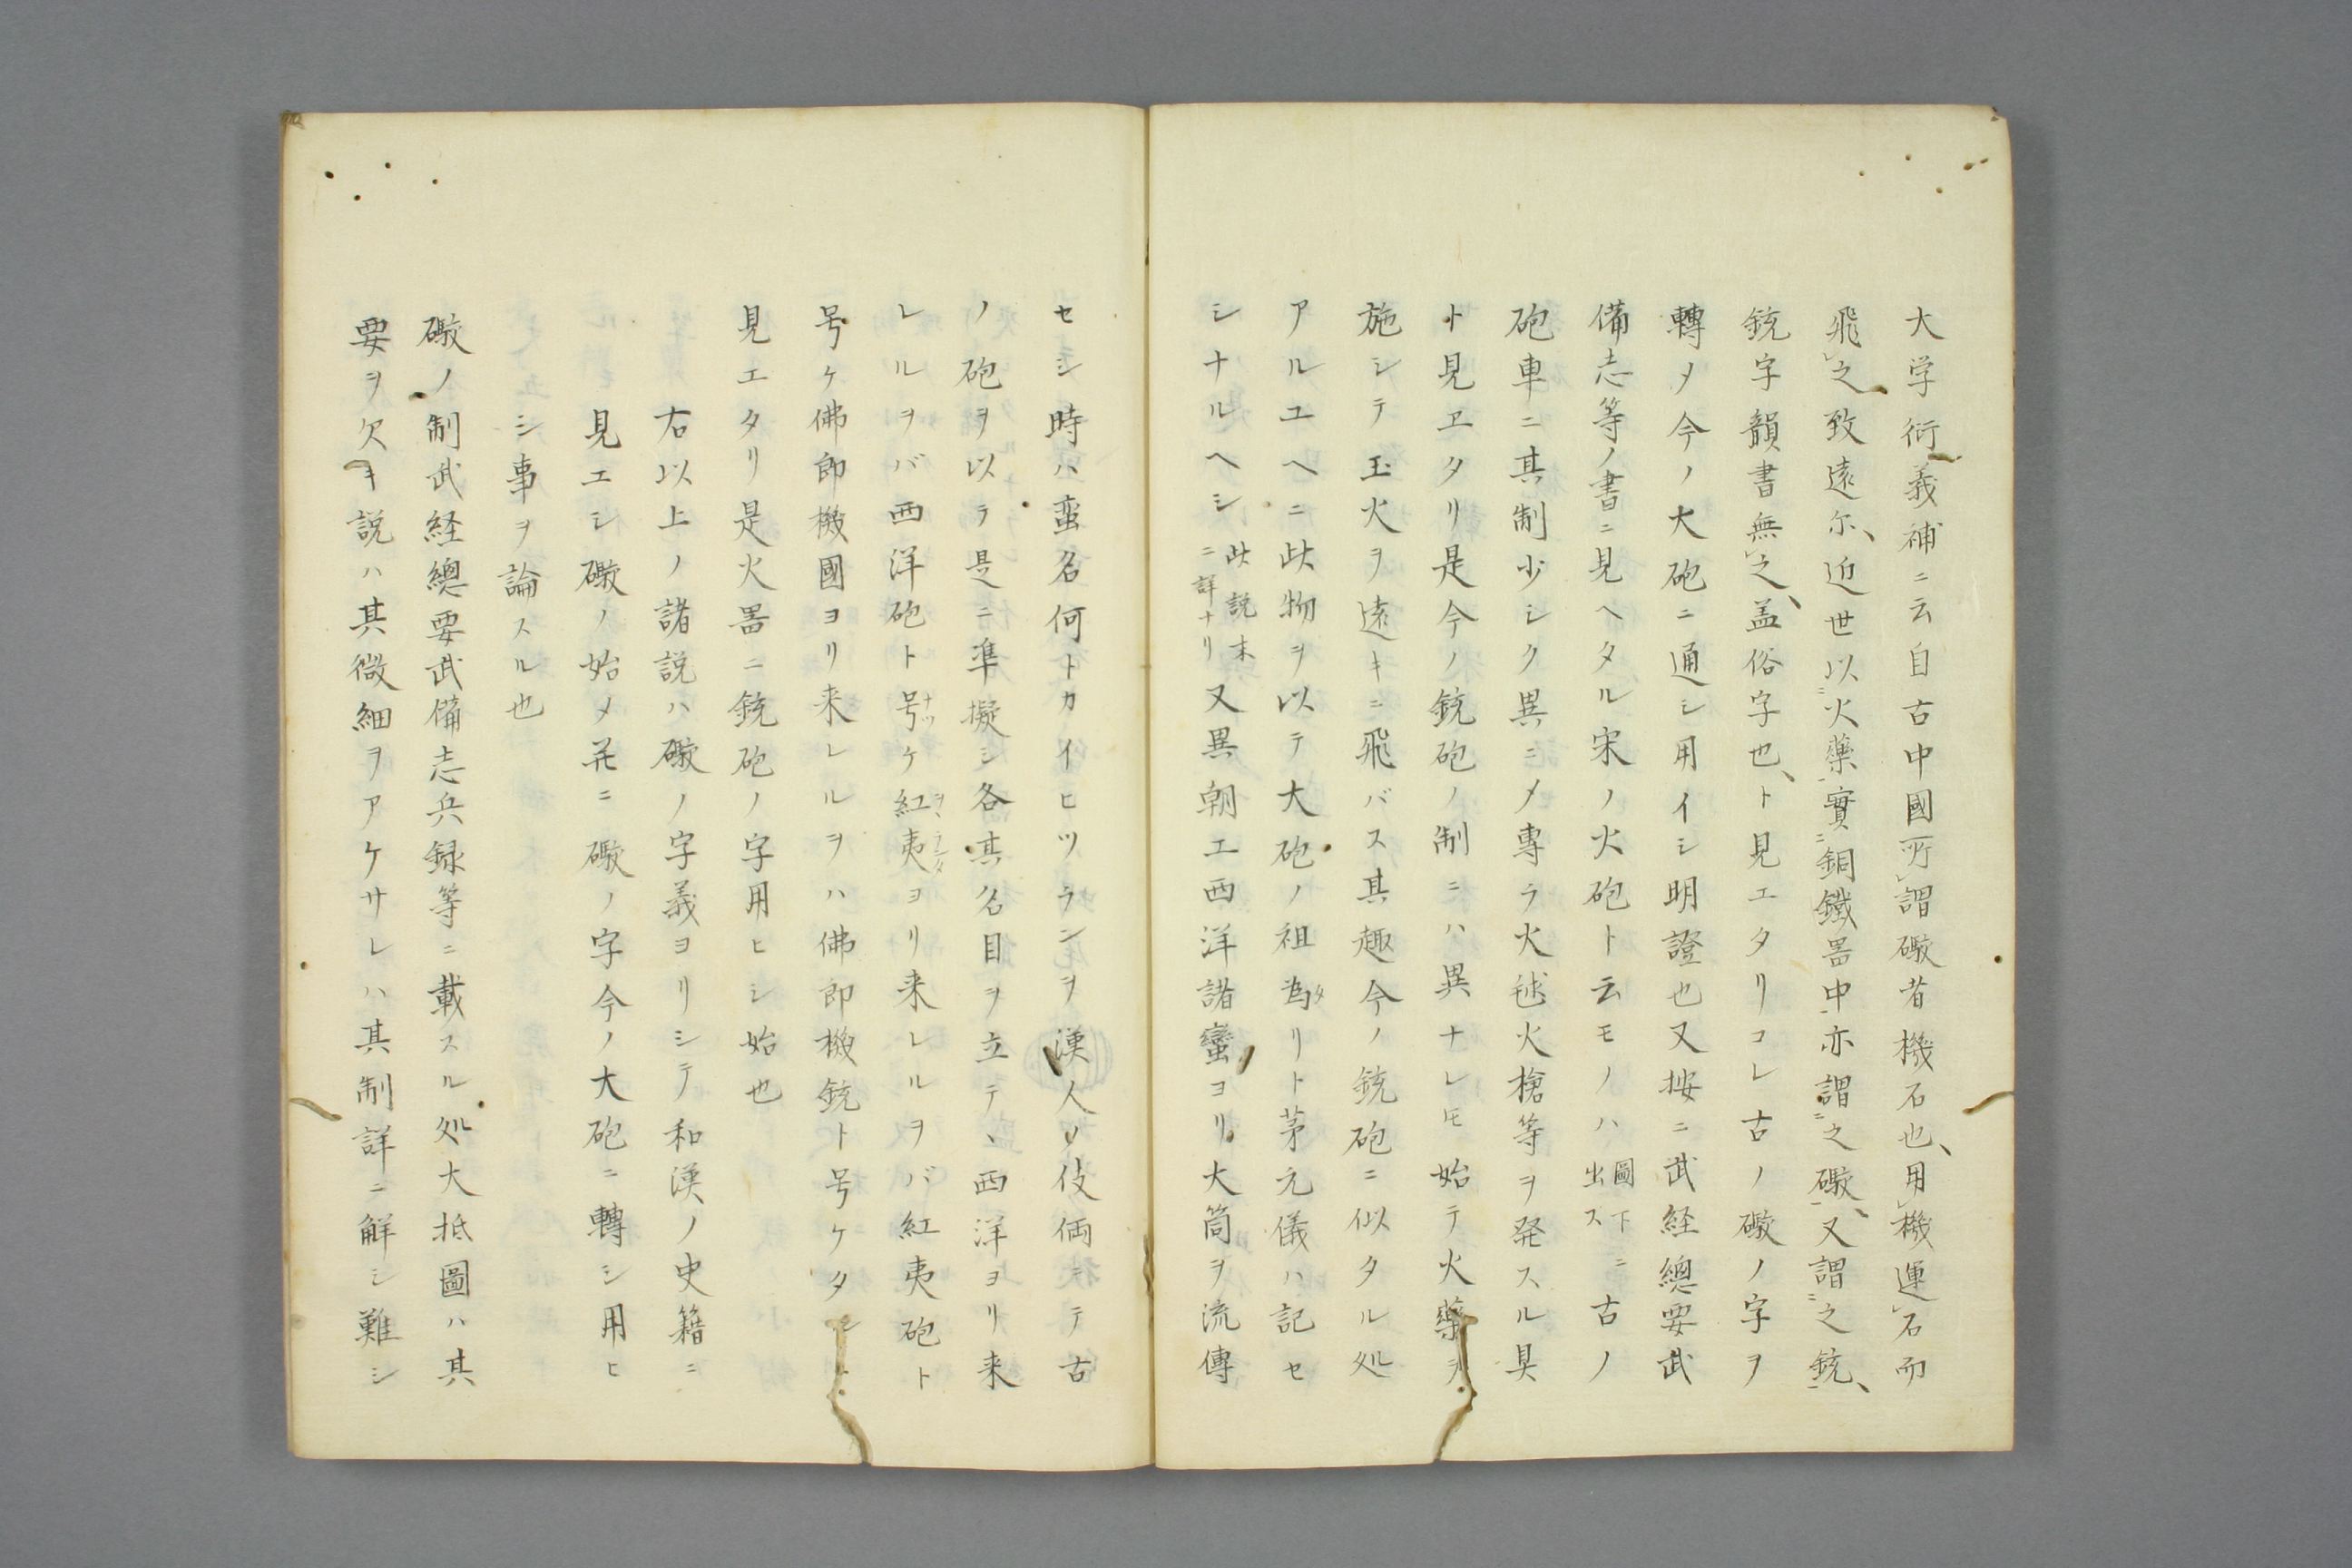 大学衍義補ニ云自古中國所謂礮者機石也用機運石而
飛之致遠尓近世以火藥實銅鐵器中亦謂之礮又謂之銃
銃字韻書無之盖俗字也ト見エタリコレ古ノ礮ノ字ヲ
轉メ今ノ大砲ニ通シ用イシ明證也又按ニ武経總要武
備志等ノ書ニ見ヘタル宋ノ火砲ト云モノハ圖下ニ出ス古ノ
砲車ニ其制少シク異ニメ專ラ火毬火槍等ヲ発スル具
ト見ヱタリ是今ノ銃砲ノ制ニハ異ナレ𪜈始テ火藥ヲ
施シテ玉火ヲ遠キニ飛バス其趣今ノ銃砲ニ似タル処
アルユヘニ此物ヲ以テ大砲ノ祖為タリト茅元儀ハ記セ
シナルヘシ此説末ニ詳ナリ又異朝エ西洋諸蠻ヨリ大筒ヲ流傳
セシ時ハ蛮名何トカイヒツランヲ漢人ノ伎倆ニテ古
ノ砲ヲ以テ是ニ準擬シ各其名目ヲ立テ、西洋ヨリ来
レルヲバ西洋砲ト号ナツケ紅夷ヲランダヨリ来レルヲバ紅夷砲ト
号ケ佛郎機國ヨリ来レルヲハ佛郎機銃ト号ケタ
見エタリ是火器ニ銃砲ノ字用ヒシ始也
右以上ノ諸説ハ礮ノ字義ヨリシテ和漢ノ史籍ニ
見エシ礮ノ始メ并ニ礮ノ字今ノ大砲ニ轉シ用ヒ
シ事ヲ論スル也
礮ノ制武経總要武備志兵録等ニ載スル処大抵圖ハ其
要ヲ欠キ説ハ其微細ヲアケサレハ其制詳ニ解シ難シ